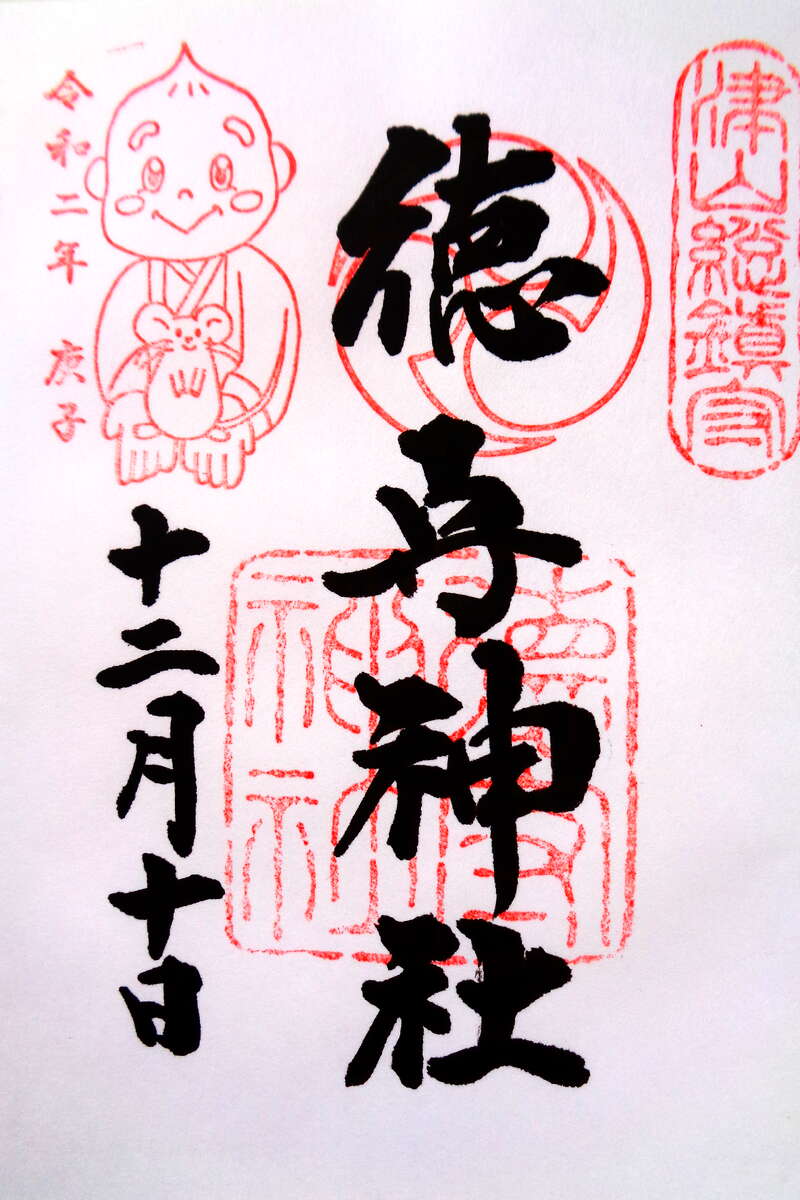 津山総鎮守
徳守神社
徳守
神社
十二月十日
令和二年 庚子